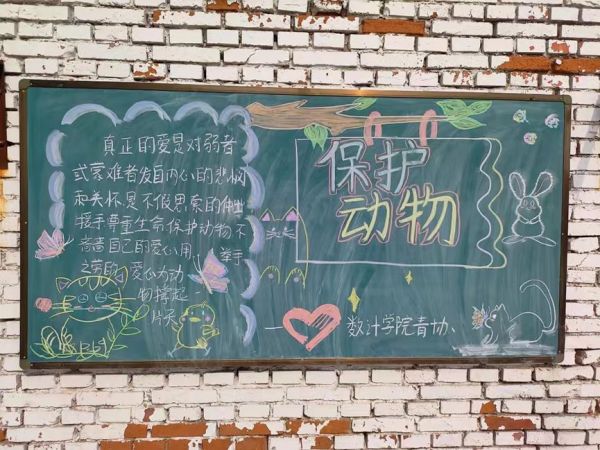 真正的爱是对弱者
或蒙难者发自内心的悲悯
和关怀是不假思索的伸出
援手尊重生命保护动物不
吝啬自己的爱心用 举手
之劳的 爱心为动
物撑起
片天
保护
动物
数计学院青协、